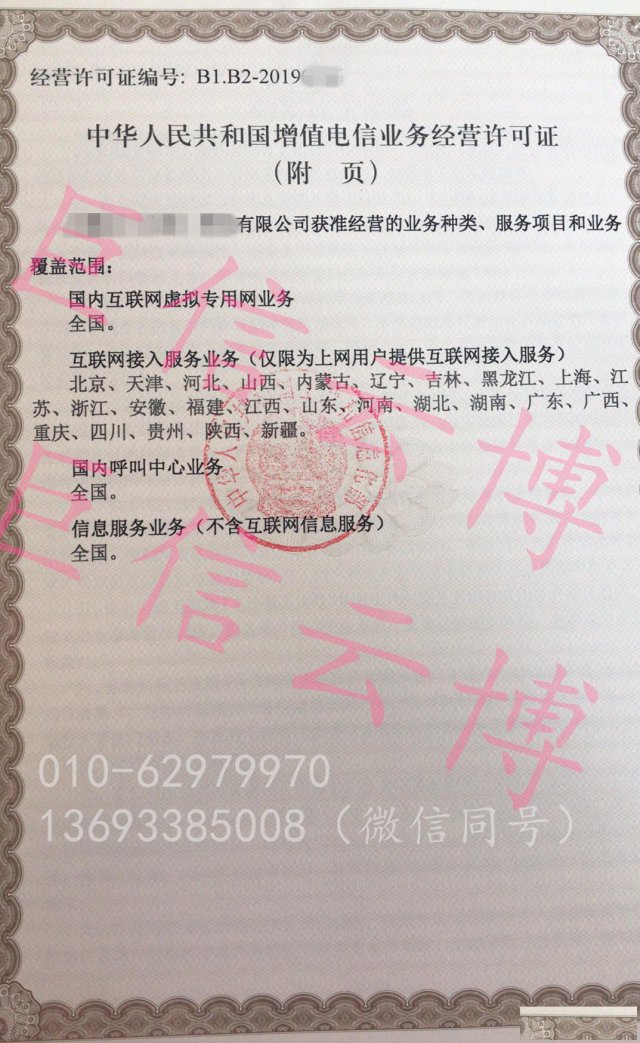 经营许可证编号: B1.B2-2019
中华人民共和国增值电信业务经营许可证
（附 页）
有限公司获准经营的业务种类、服务项目和业务
覆盖范围：
国内互联网虚拟专用网业务
全国。
互联网接入服务业务（仅限为上网用户提供互联网接入服务）
北京、天津、河北、山西、内蒙古、辽宁、吉林、黑龙江、上海、江
苏、浙江、安徽、福建、江西、山东、河南、湖北、湖南、广东、广西、
重庆、四川、贵州、陕西、新疆。
国内呼叫中心业务
全国。
信息服务业务（不含互联网信息服务）
全国。
巨信云博
巨信云博
010-62979970
13693385008（微信同号）